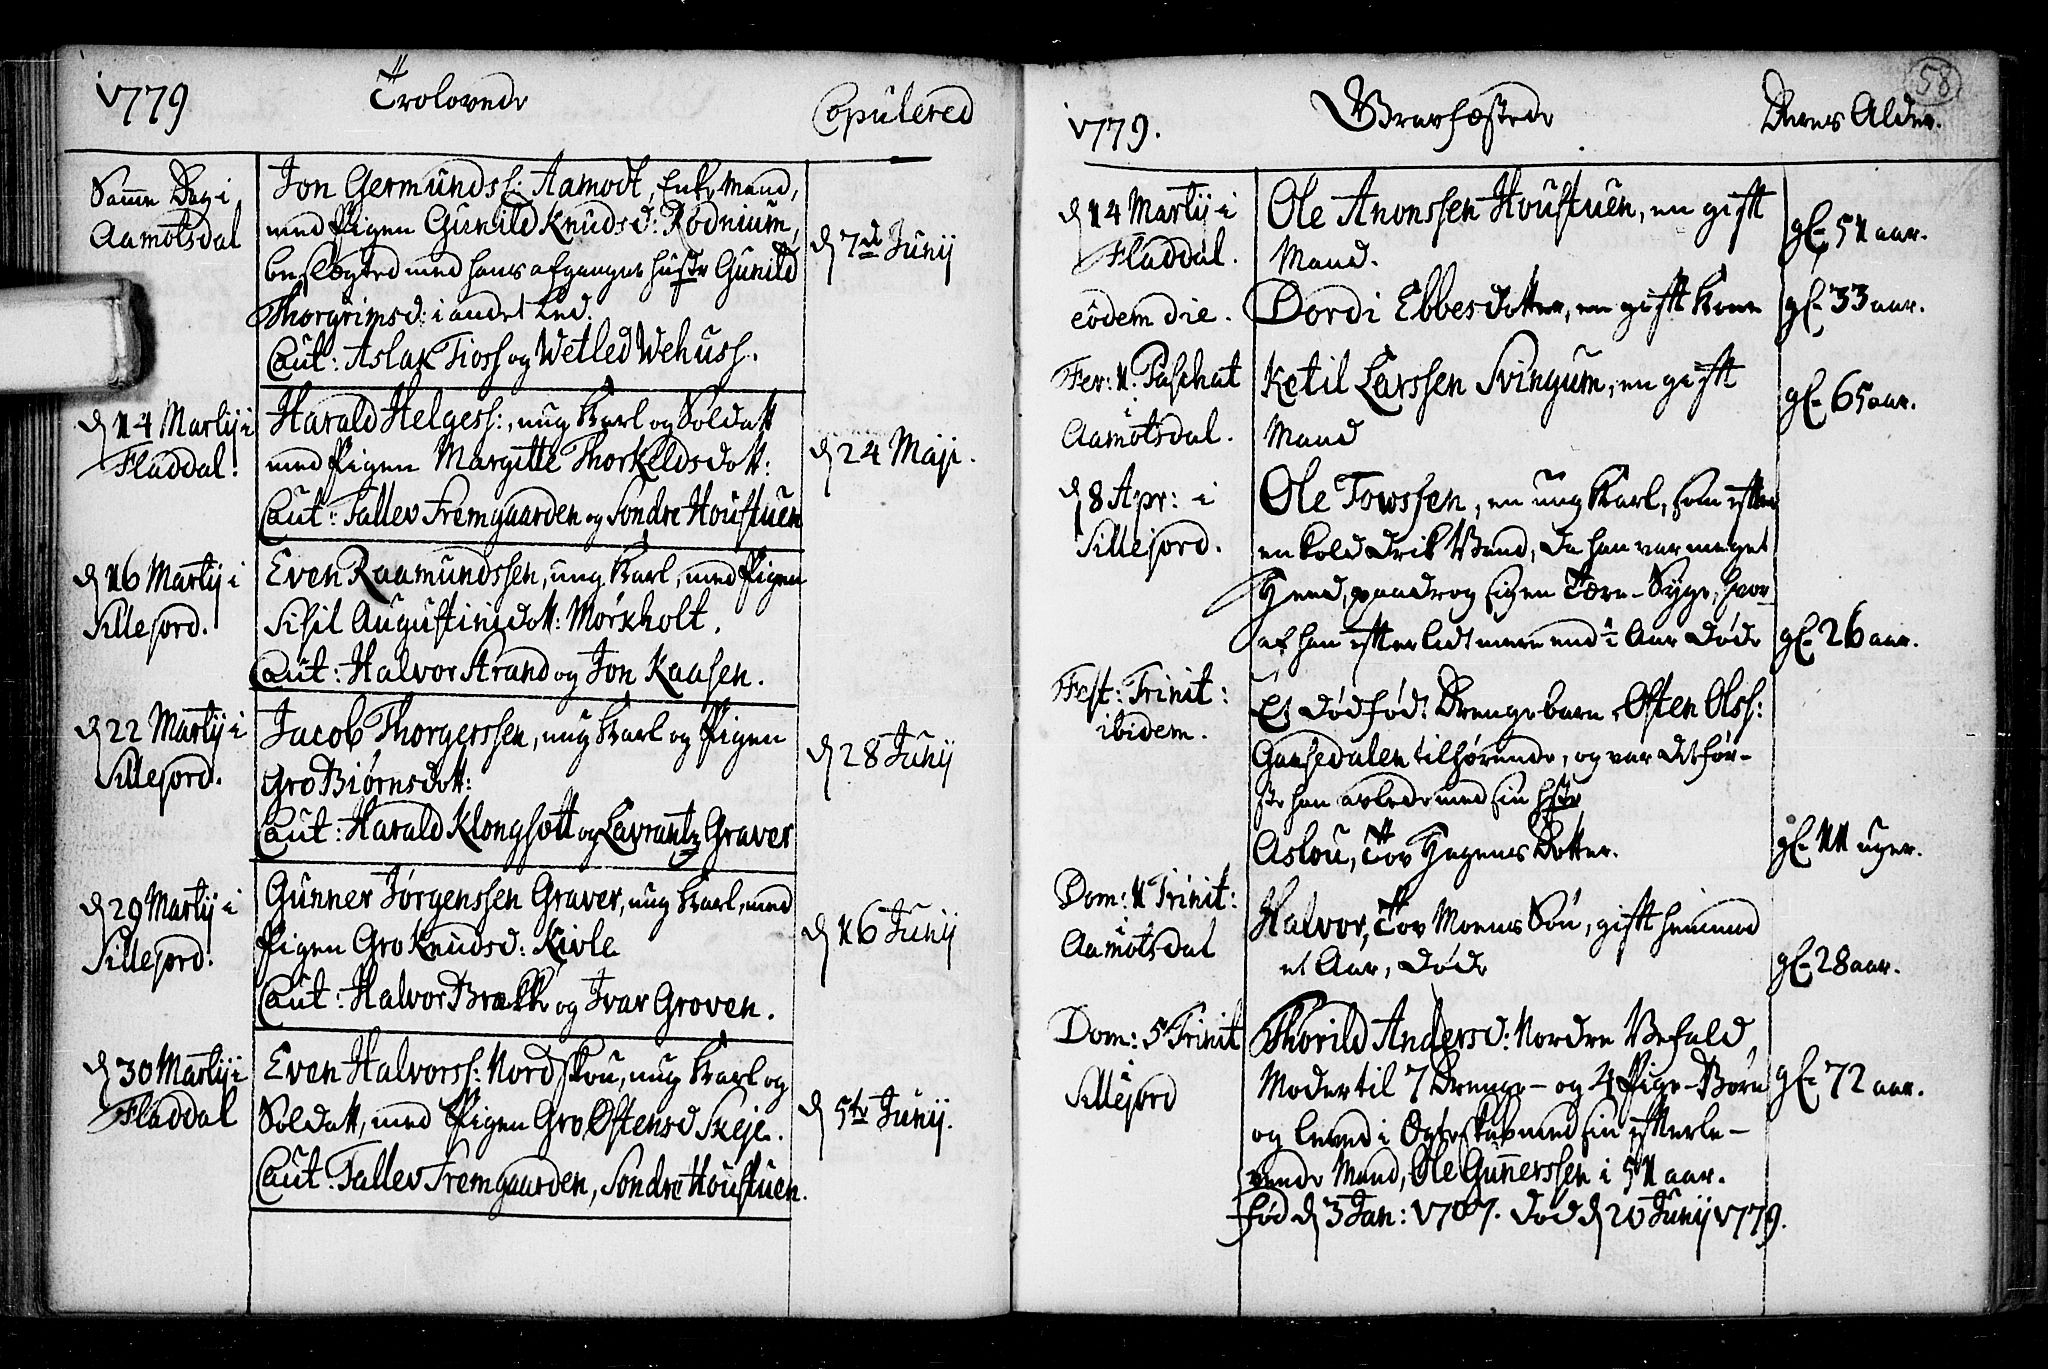 1779
Trolovede
Copulered
Samme Dag i
Aamotsdal
Jon Germundss: Aamodt, Enke Mand,
med Pigen Gunild Knudsd: Rodnium,
beslegted med hans afgangne hustr Gunild
Thorgrimsd: i andet Led.
Caut: Aslak Tioss og Wetled Wehuss.
d 7de Junij
d 14 Martij i
Fladdal.
Harald Helgess:, ung Karl og Soldatt
med Pigen Margitte Thorkeldsdott:
Caut: Tallev Fremgaarden og Sondre Houstuen
d 24 Maji.
d 16 Martij i
Sillejord.
Even Raamundssen, ung Karl, med Pigen
Sisil Augustinidott: Mørkholt.
Caut: Halvor Strand og Jon Kaasen.
d 22 Martij i
Sillejord.
Jacob Thorgerssen, ung Karl og Pigen
Gro Biørnsdott:
Caut: Harald Klongsøtt og Lavrantz Graver
d 28 Junij
d 29 Martij i
Sillejord.
Gunner Jørgenssen Graver, ung Karl, med
Pigen Gro Knudsd: Kivle
Caut: Halvor Brække og Ivar Groven.
d 16 Junij
d 30 Martij i
Fladdal
Even Halvorss: Nordskou, ung Karl og
Soldatt, med Pigen Gro Østensd Skeje.
Caut: Tallev Fremgaarden, Sondre Houstuen.
d 5te Junij.
58
1779.
Gravfæstede
Deres Alder.
d 14 Martij i
Fladdal.
Ole Anonssen Houstuen, en gift
Mand.
gl. 51 aar.
eodem die.
Dordi Ebbesdotter, en gift Kone
gl. 33 aar.
Fer: 1. Paschat
i
Aamotsdal.
Ketil Larssen Svingum, en gift
Mand
gl. 65 aar.
d 8 Apr: i
Sillejord.
Ole Towssen, en ung Karl, som efter
en kold Drik Vand, da han var meget
heed, paadrog sig en Tære-Syge, hvor-
af han efter lidt mere end 1/2 Aar døde
gl. 26 aar.
Fest: Trinit:
ibidem.
Et dødfød: Drengebarn, Østen Olss:
Gaasedalen tilhørende, og var det før-
ste han avlede med sin hstr
Aslou, Tov Hagens Dotter.
gl. 11 uger.
Dom: 1 Trinit:
i
Aamotsdal
Halvor, Tov Moens Søn, gift henimod
et Aar, døde
gl. 28 aar.
Dom: 5 Trinit
i
Sillejord
Thorild Andersd: Nordre Vefald,
Moder til 7 Drenge- og 4 Pige-Børn
og leved i Ægteskab med sin efterle-
vende Mand, Ole Gunnerssen i 51 aar.
fød d 3 Jan: 1707. død d 20 Junij 1779.
gl. 72 aar.